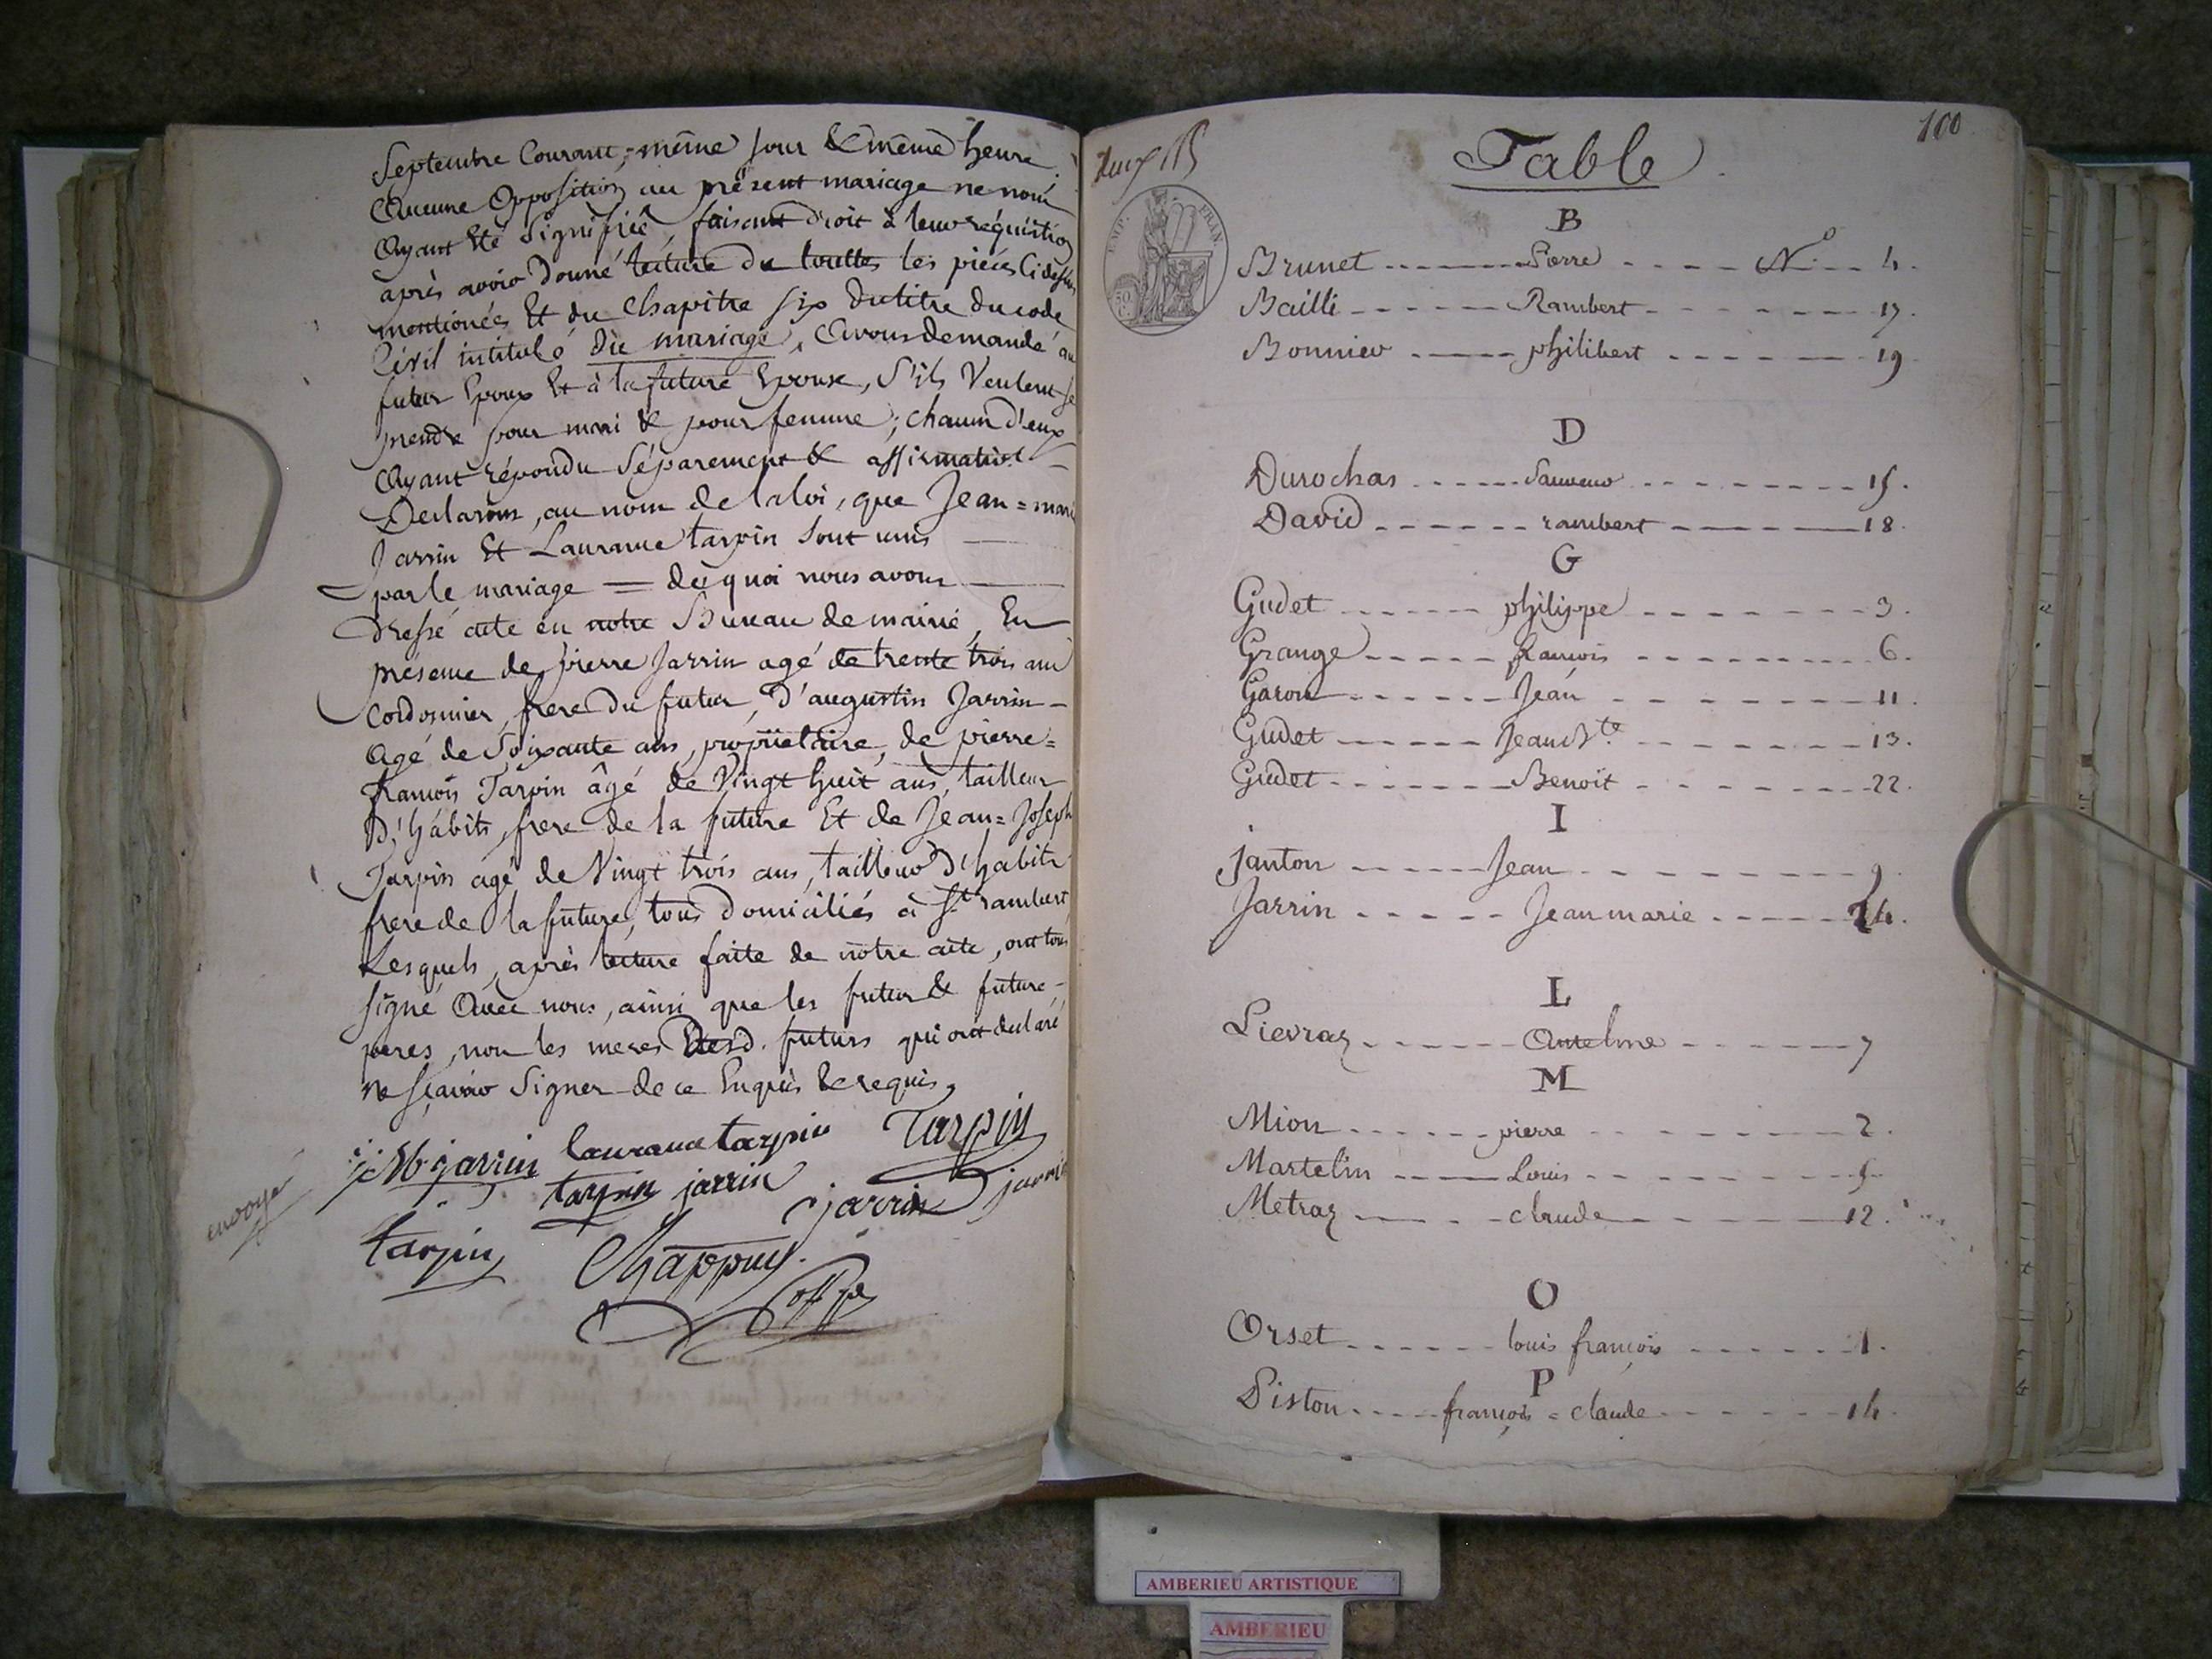 Septembre Courant, même jour & même heure
Aucune Opposition au présent mariage ne nous
Ayant été signifiée, faisant droit à leur réquisition
après avoir donné lecture de touttes les piéces Ci dessus
mentionées Et du Chapitre six du titre du code
Civil intitulé du mariage, Avons demandé au
futur Epoux Et à la future Epouse, S'ils Veulent se
prendre pour mari & pour femme; chacun d'eux
Ayant répondu Séparement & affirmativt
Declarons, au nom de la loi, que Jean = marie
Jarrin Et Laurance tarpin Sont unis
par le mariage = de quoi nous avons
Dressé acte en notre Bureau de mairie, En
présence de pierre Jarrin agé de trente trois ans
Cordonnier, frere Du futur, D'augustin Jarrin
Agé de Soixante ans, propriétaire, de pierre =
françois Tarpin âgé de Vingt huit ans, tailleur
D'habits, frere de la future Et de Jean = Joseph
Tarpin agé de Vingt trois ans, tailleur D'habits
frere de la future, tous Domiciliés à St rambert
Lesquels, après lecture faitte de notre acte, ont tous
signé Avec nous, ainsi que les futur & future,
peres, non les meres Desd. futurs qui ont declaré
ne sçavoir Signer de ce Enquis & requis,
jMb jarrin laurance tarpin Tarpin
tarpin jarrin jarrin jarrin
envoyé
tarpin Chappuy
off p
100
Table
EMP. FRAN.
50 C.
B
Brunet Pierre No 4.
Bailli Rambert 17.
Bonnier philibert 19
D
Durochas Sauveur 15.
David rambert 18.
G
Gudet philippe 3.
Grange françois 6.
Garon Jean 11.
Gudet Jean Bte 13.
Gudet Benoit 22.
I
janton Jean 9
Jarrin Jean marie 24.
L
Lievraz Antelme 7
M
Mion pierre 2.
Martelin Louis 5
Metraz claude 12.
O
Orset louis françois 1.
P
Piston françois = claude 14.
AMBERIEU ARTISTIQUE
AMBERIEU